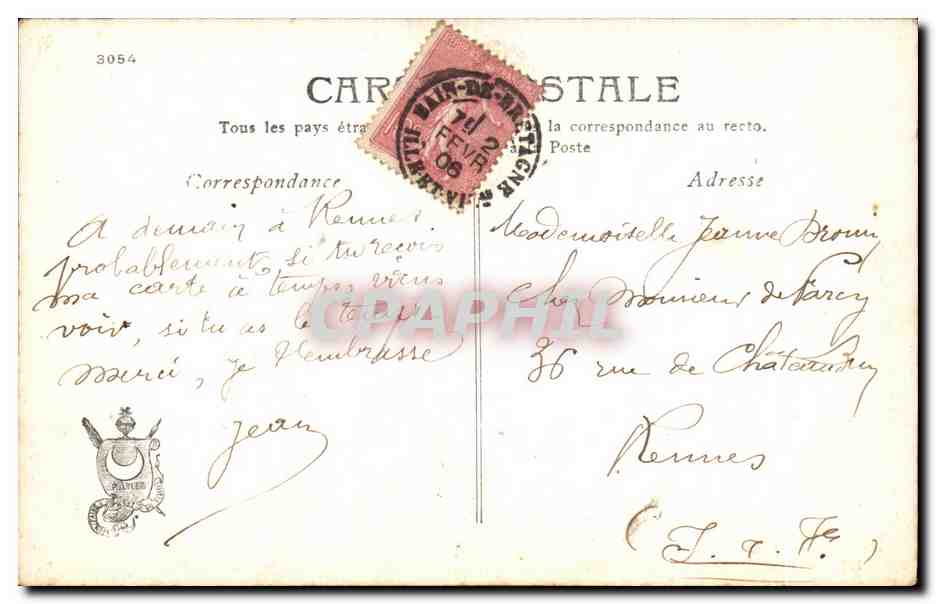 3054
CARTE POSTALE
Tous les pays étra la correspondance au recto.
à la Poste
Correspondance
Adresse
BAIN-DE-BRETAGNE
ILLE-ET-V
7 2
FEVR
06
A demain à Rennes
probablement, si tu reçois
ma carte à temps, viens
voir, si tu as le temps
Merci, je t'embrasse
Jean
Mademoiselle Jeanne
chez Monsieur de Farcy
36 rue de Châteaudun
Rennes
(I. & V.)
CPAPHIL